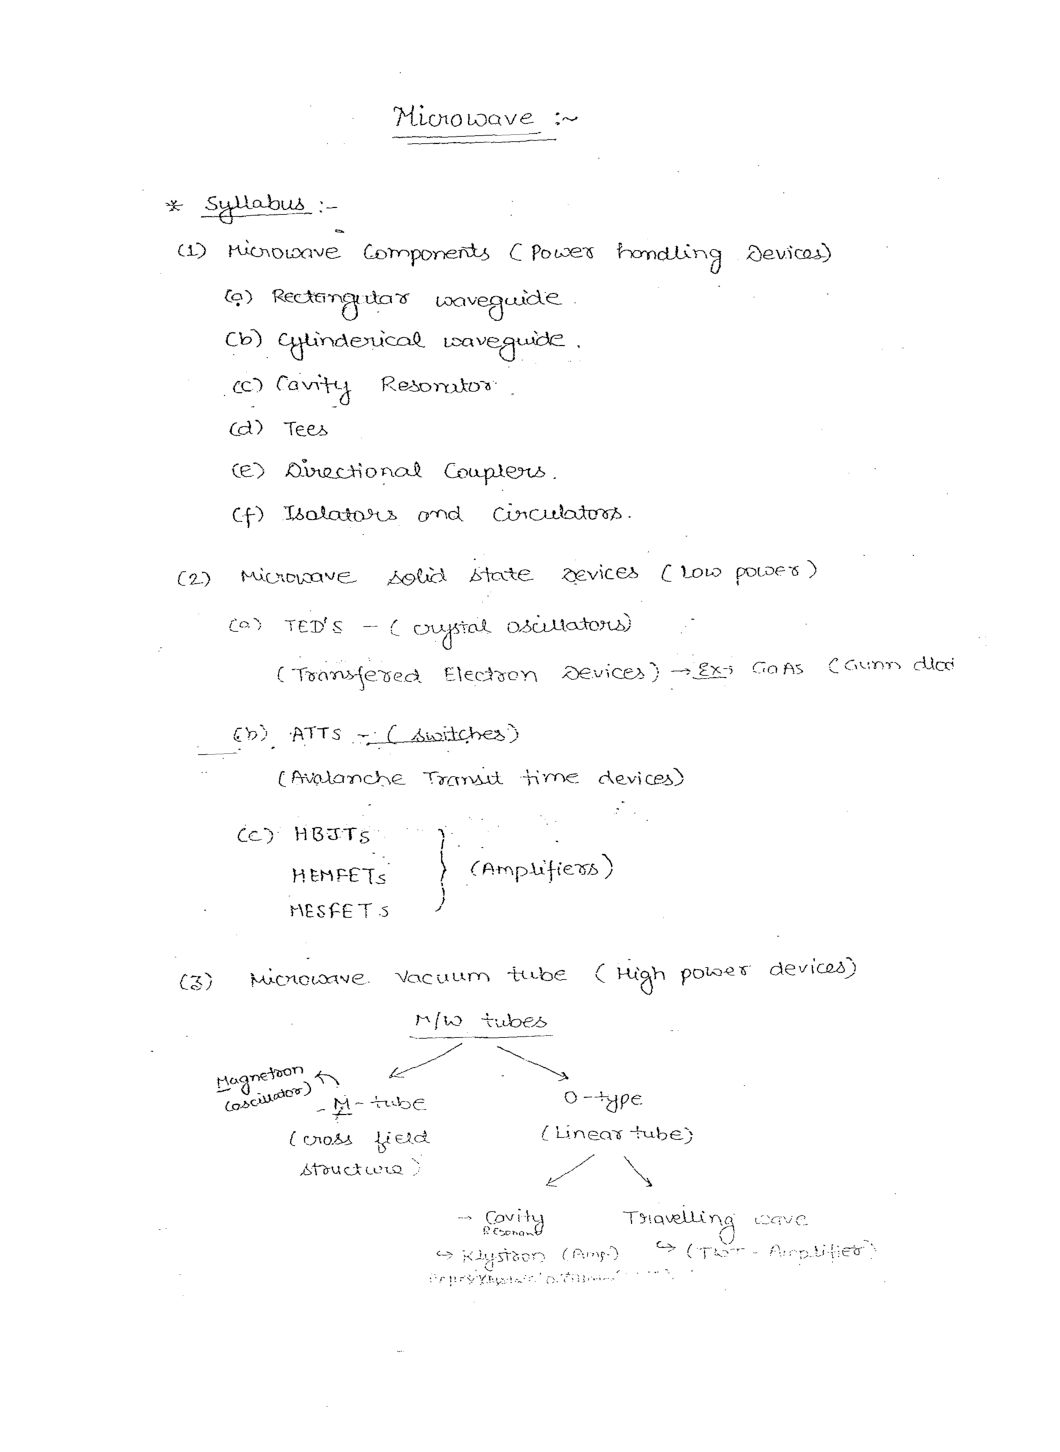 Microwave :~
* Syllabus :-
(1) Microwave Components (Power handling Devices)
(a) Rectangular waveguide.
(b) Cylinderical waveguide.
(c) Cavity Resonator.
(d) Tees
(e) Directional Couplers.
(f) Isolators and Circulators.
(2) Microwave solid state Devices (Low power)
(a) TED'S - (crystal oscillators)
(Transfered Electron Devices) → Ex:- GaAs (Gunn diod
(b) ATTS - (switches)
(Avalanche Transit time devices)
(c) HBJTs
HEMFETs
MESFETs
(Amplifiers)
(3) Microwave Vacuum tube (High power devices)
M/W tubes
Magnetron
(oscillator)
- M-tube
(cross field
structure)
O-type
(Linear tube)
- Cavity
Resonant
↳ Klystron (Amp.)
Travelling wave
↳ (TWT - Amplifier)